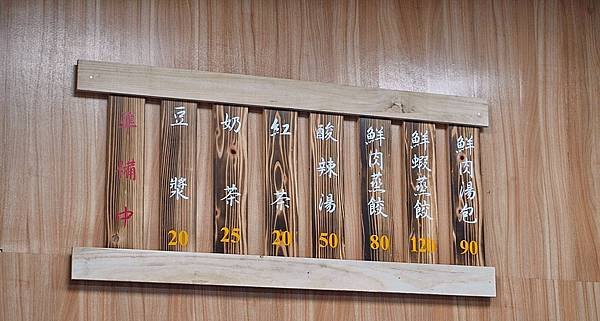 鮮肉湯包
90
鮮蝦蒸餃
120
鮮肉蒸餃
80
酸辣湯
50
紅茶
20
奶茶
25
豆漿
20
準備中